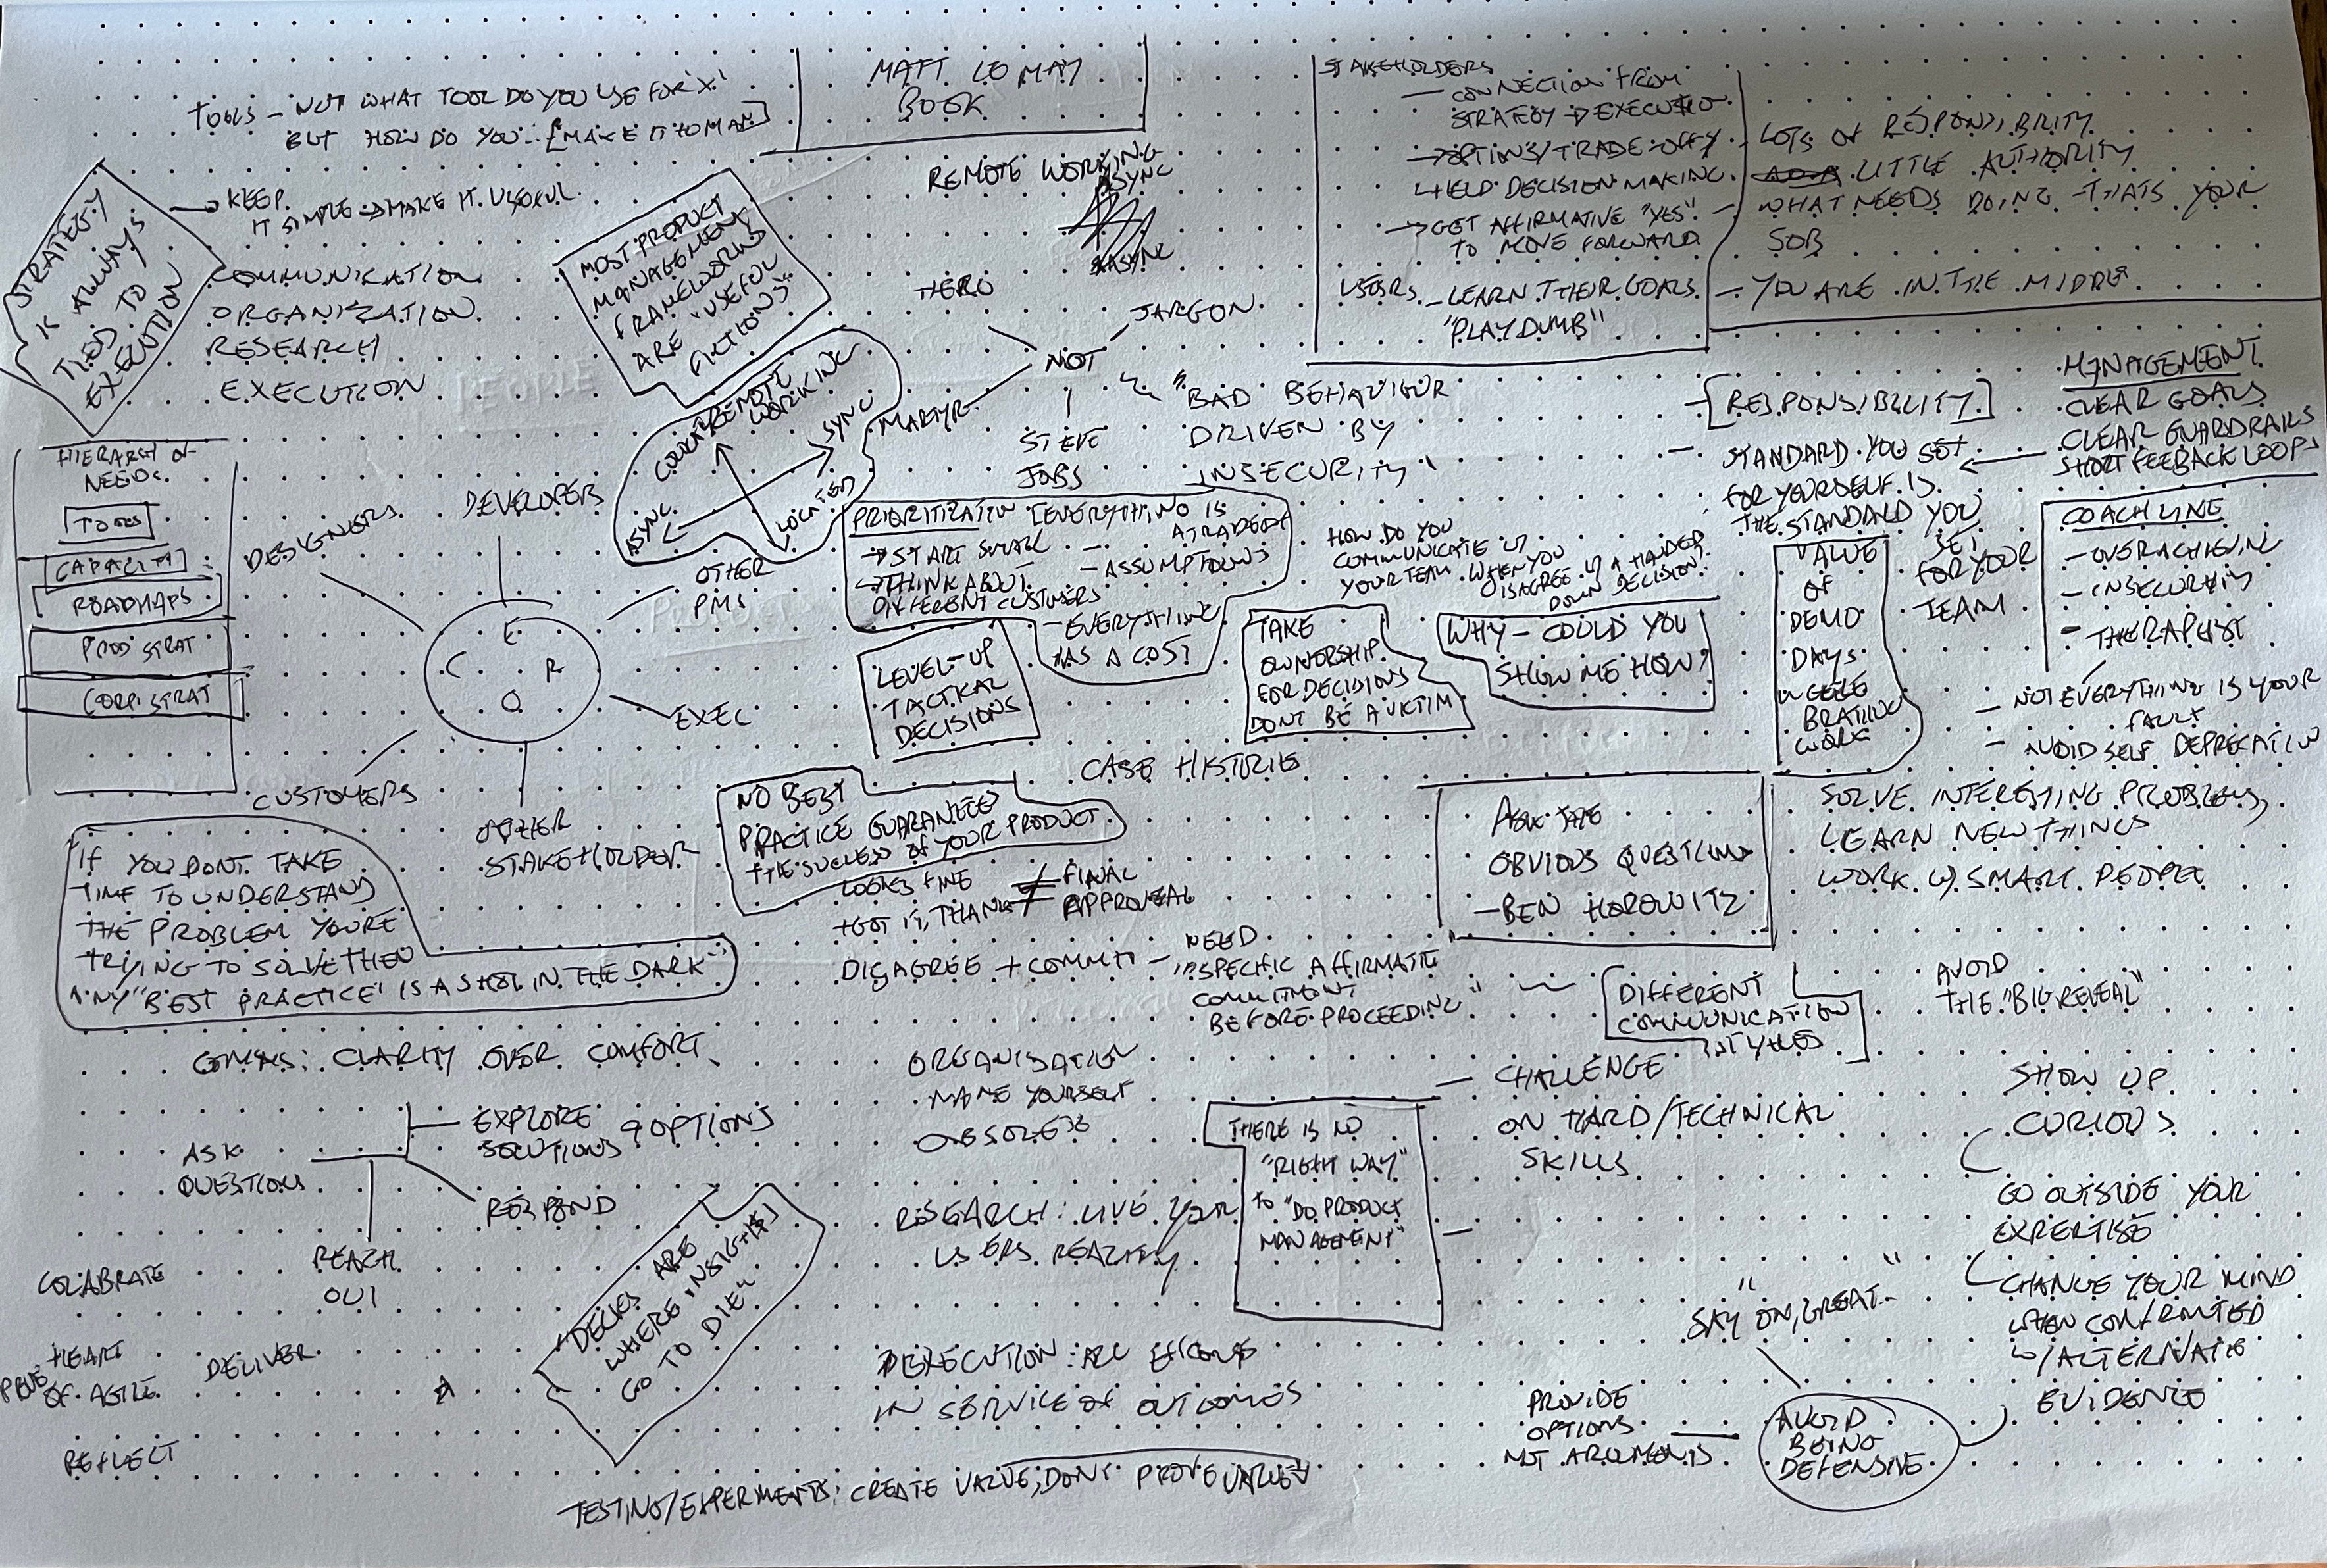 TOOLS – NOT WHAT TOOL DO YOU USE FOR X!
BUT HOW DO YOU...
MATT LE MAY
BOOK
STRATEGY
IS ALWAYS
TIED TO
EXECUTION
KEEP
IT SIMPLE → MAKE IT USEFUL
COMMUNICATION
ORGANIZATION
RESEARCH
EXECUTION
MOST PRODUCT
MANAGEMENT
FRAMEWORKS
ARE "USEFUL
FICTIONS"
REMOTE WORKING
SYNC
ASYNC
HERO
JARGON
NOT
MARTYR
STEVE
JOBS
"BAD BEHAVIOUR
DRIVEN BY
INSECURITY"
STAKEHOLDERS
– CONNECTION FROM
STRATEGY → EXECUTION
→ OPTIONS/TRADE-OFFS
DECISION MAKING
→ GET AFFIRMATIVE "YES"
TO MOVE FORWARD
USERS – LEARN THEIR GOALS
"PLAY DUMB"
– LOTS OF RESPONSIBILITY
LITTLE AUTHORITY
– WHAT NEEDS DOING – THATS YOUR
JOB
– YOU ARE IN THE MIDDLE
REMOTE
WORKING
SYNC
ASYNC
LOCATED
HIERARCH OF
NEEDS
TOOLS
CAPACITY
ROADMAPS
PROD STRAT
CORP STRAT
DESIGNERS
DEVELOPERS
OTHER
PMS
EXEC
OTHER
STAKEHOLDER
CUSTOMERS
C E R O
PRIORITIZATION [EVERYTHING IS
A TRADEOFF
→ START SMALL
– ASSUMPTIONS
→ THINK ABOUT
DIFFERENT CUSTOMERS
– EVERYTHING
HAS A COST
HOW DO YOU
COMMUNICATE W
YOUR TEAM WHEN YOU
DISAGREE W A HANDED
DOWN DECISION?
– [RESPONSIBILITY]
– STANDARD YOU SET
FOR YOURSELF IS
THE STANDARD YOU
SET
FOR YOUR
TEAM
MANAGEMENT
CLEAR GOALS
CLEAR GUARDRAILS
SHORT FEEDBACK LOOPS
COACH LINE
– OVERACHIEVING
– INSECURITY
– THERAPIST
– NOT EVERYTHING IS YOUR
FAULT
– AVOID SELF DEPRECATION
LEVEL-UP
TACTICAL
DECISIONS
TAKE
OWNERSHIP
FOR DECISIONS
DONT BE A VICTIM
WHY – COULD YOU
SHOW ME HOW?
VALUE
OF
DEMO
DAYS
BRATING
WORK
CASE HISTORIE
NO BEST
PRACTICE GUARANTEES
THE SUCCESS OF YOUR PRODUCT
LOOKS FINE
+ GOT IT, THANKS ≠ FINAL
APPROVEAL
DISAGREE + COMMIT – NEED
"SPECIFIC AFFIRMATIVE
COMMITMENT
BEFORE PROCEEDING"
ASK THE
OBVIOUS QUESTIONS
– BEN HOROWITZ
SOLVE INTERESTING PROBLEMS,
LEARN NEW THINGS
WORK W/ SMART PEOPLE
"IF YOU DONT TAKE
TIME TO UNDERSTAND
THE PROBLEM YOURE
TRYING TO SOLVE THEN
ANY "BEST PRACTICE" IS A SHOT IN THE DARK"
DIFFERENT
COMMUNICATION
STYLES
AVOID
THE "BIG REVEAL"
COMMS: CLARITY OVER COMFORT
ASK
QUESTIONS
EXPLORE
SOLUTIONS
OPTIONS
RESPOND
REACH
OUT
ORGANISATION
MAKE YOURSELF
OBSOLETE
RESEARCH: LIVE YOUR
USERS REALITY
THERE IS NO
"RIGHT WAY"
TO "DO PRODUCT
MANAGEMENT"
– CHALLENGE
ON HARD/TECHNICAL
SKILLS
SHOW UP
CURIOUS
GO OUTSIDE YOUR
EXPERTISE
CHANGE YOUR MIND
WHEN CONFRONTED
W/ALTERNATE
EVIDENCE
COLABRATE
HEART
OF AGILE
DELIVER
REFLECT
"DECKS ARE
WHERE INSIGHTS
GO TO DIE"
EXECUTION: ALL EFFORTS
IN SERVICE OF OUTCOMES
SAY "OH, GREAT.."
PROVIDE
OPTIONS
NOT ARGUMENTS
AVOID
BEING
DEFENSIVE
TESTING/EXPERMENTS: CREATE VALUE, DONT PROVE VALUE